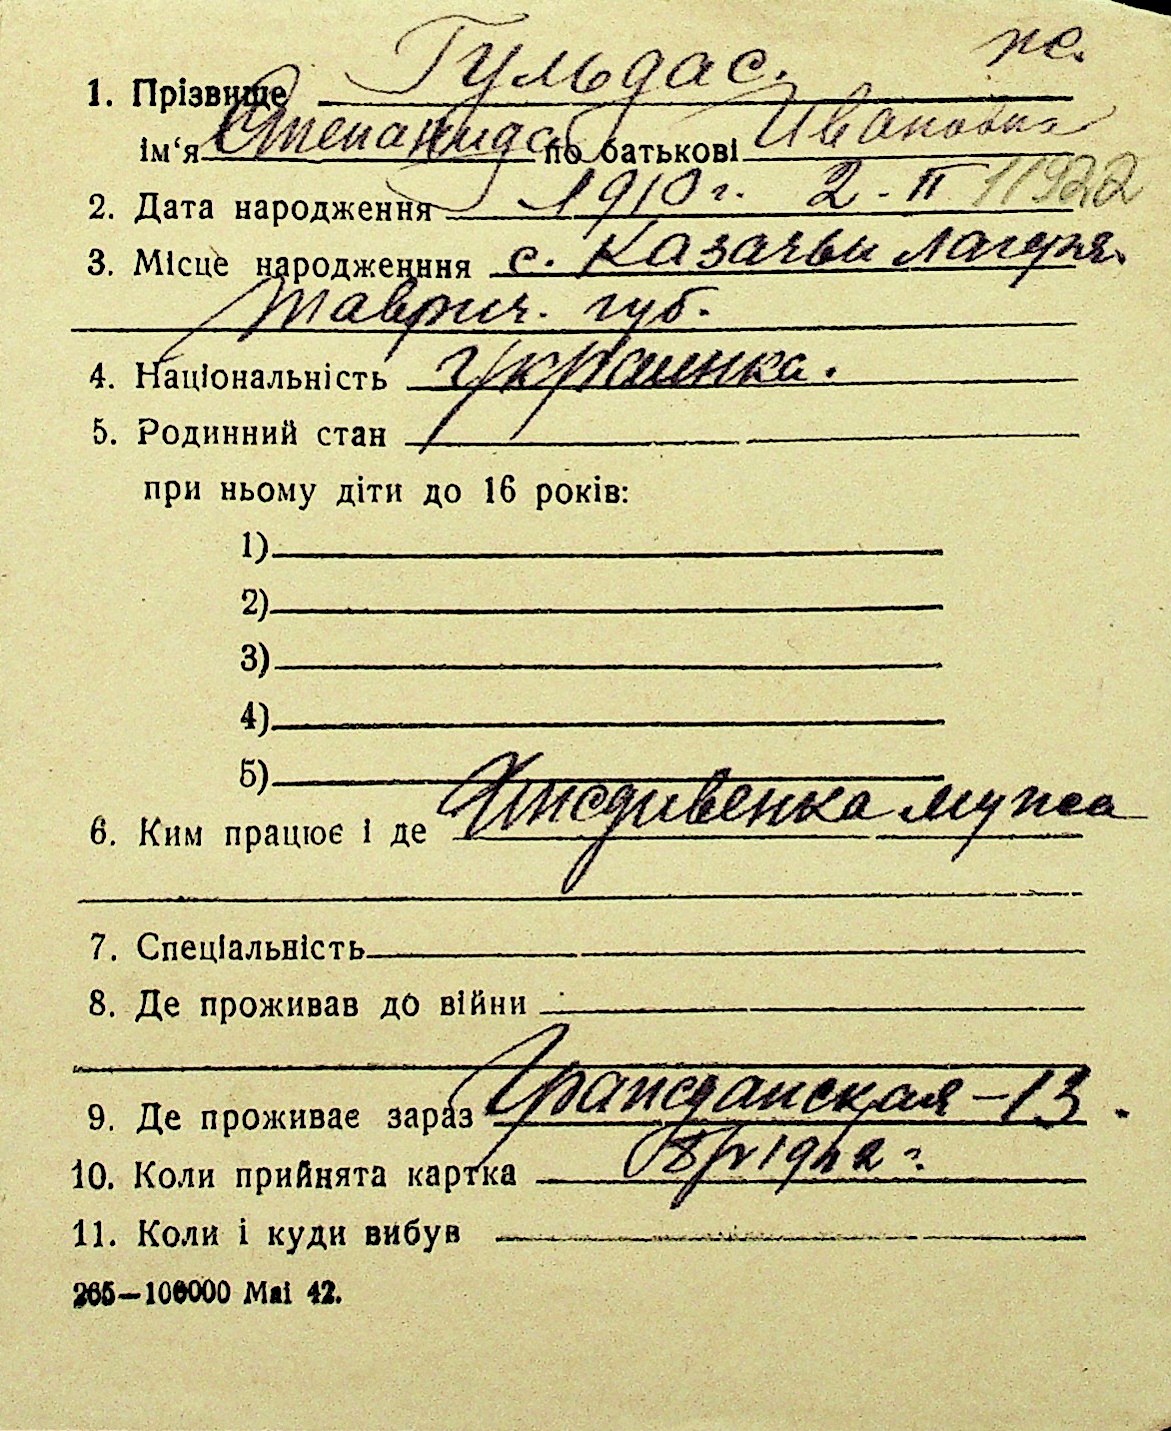 Гульдас. ж.
1. Прізвище
ім'я Степанида по батькові Ивановна
2. Дата народження 1910 г. 2 - II 11922
3. Місце народженння с. Казачьи Лагеря.
Таврич. губ.
4. Національність украинка.
5. Родинний стан
при ньому діти до 16 років:
1)
2)
3)
4)
5)
6. Ким працює і де Иждивенка мужа
7. Спеціальність
8. Де проживав до війни
9. Де проживає зараз Гражданская - 13.
10. Коли прийнята картка 1942 г.
11. Коли і куди вибув
265—100000 Маі 42.